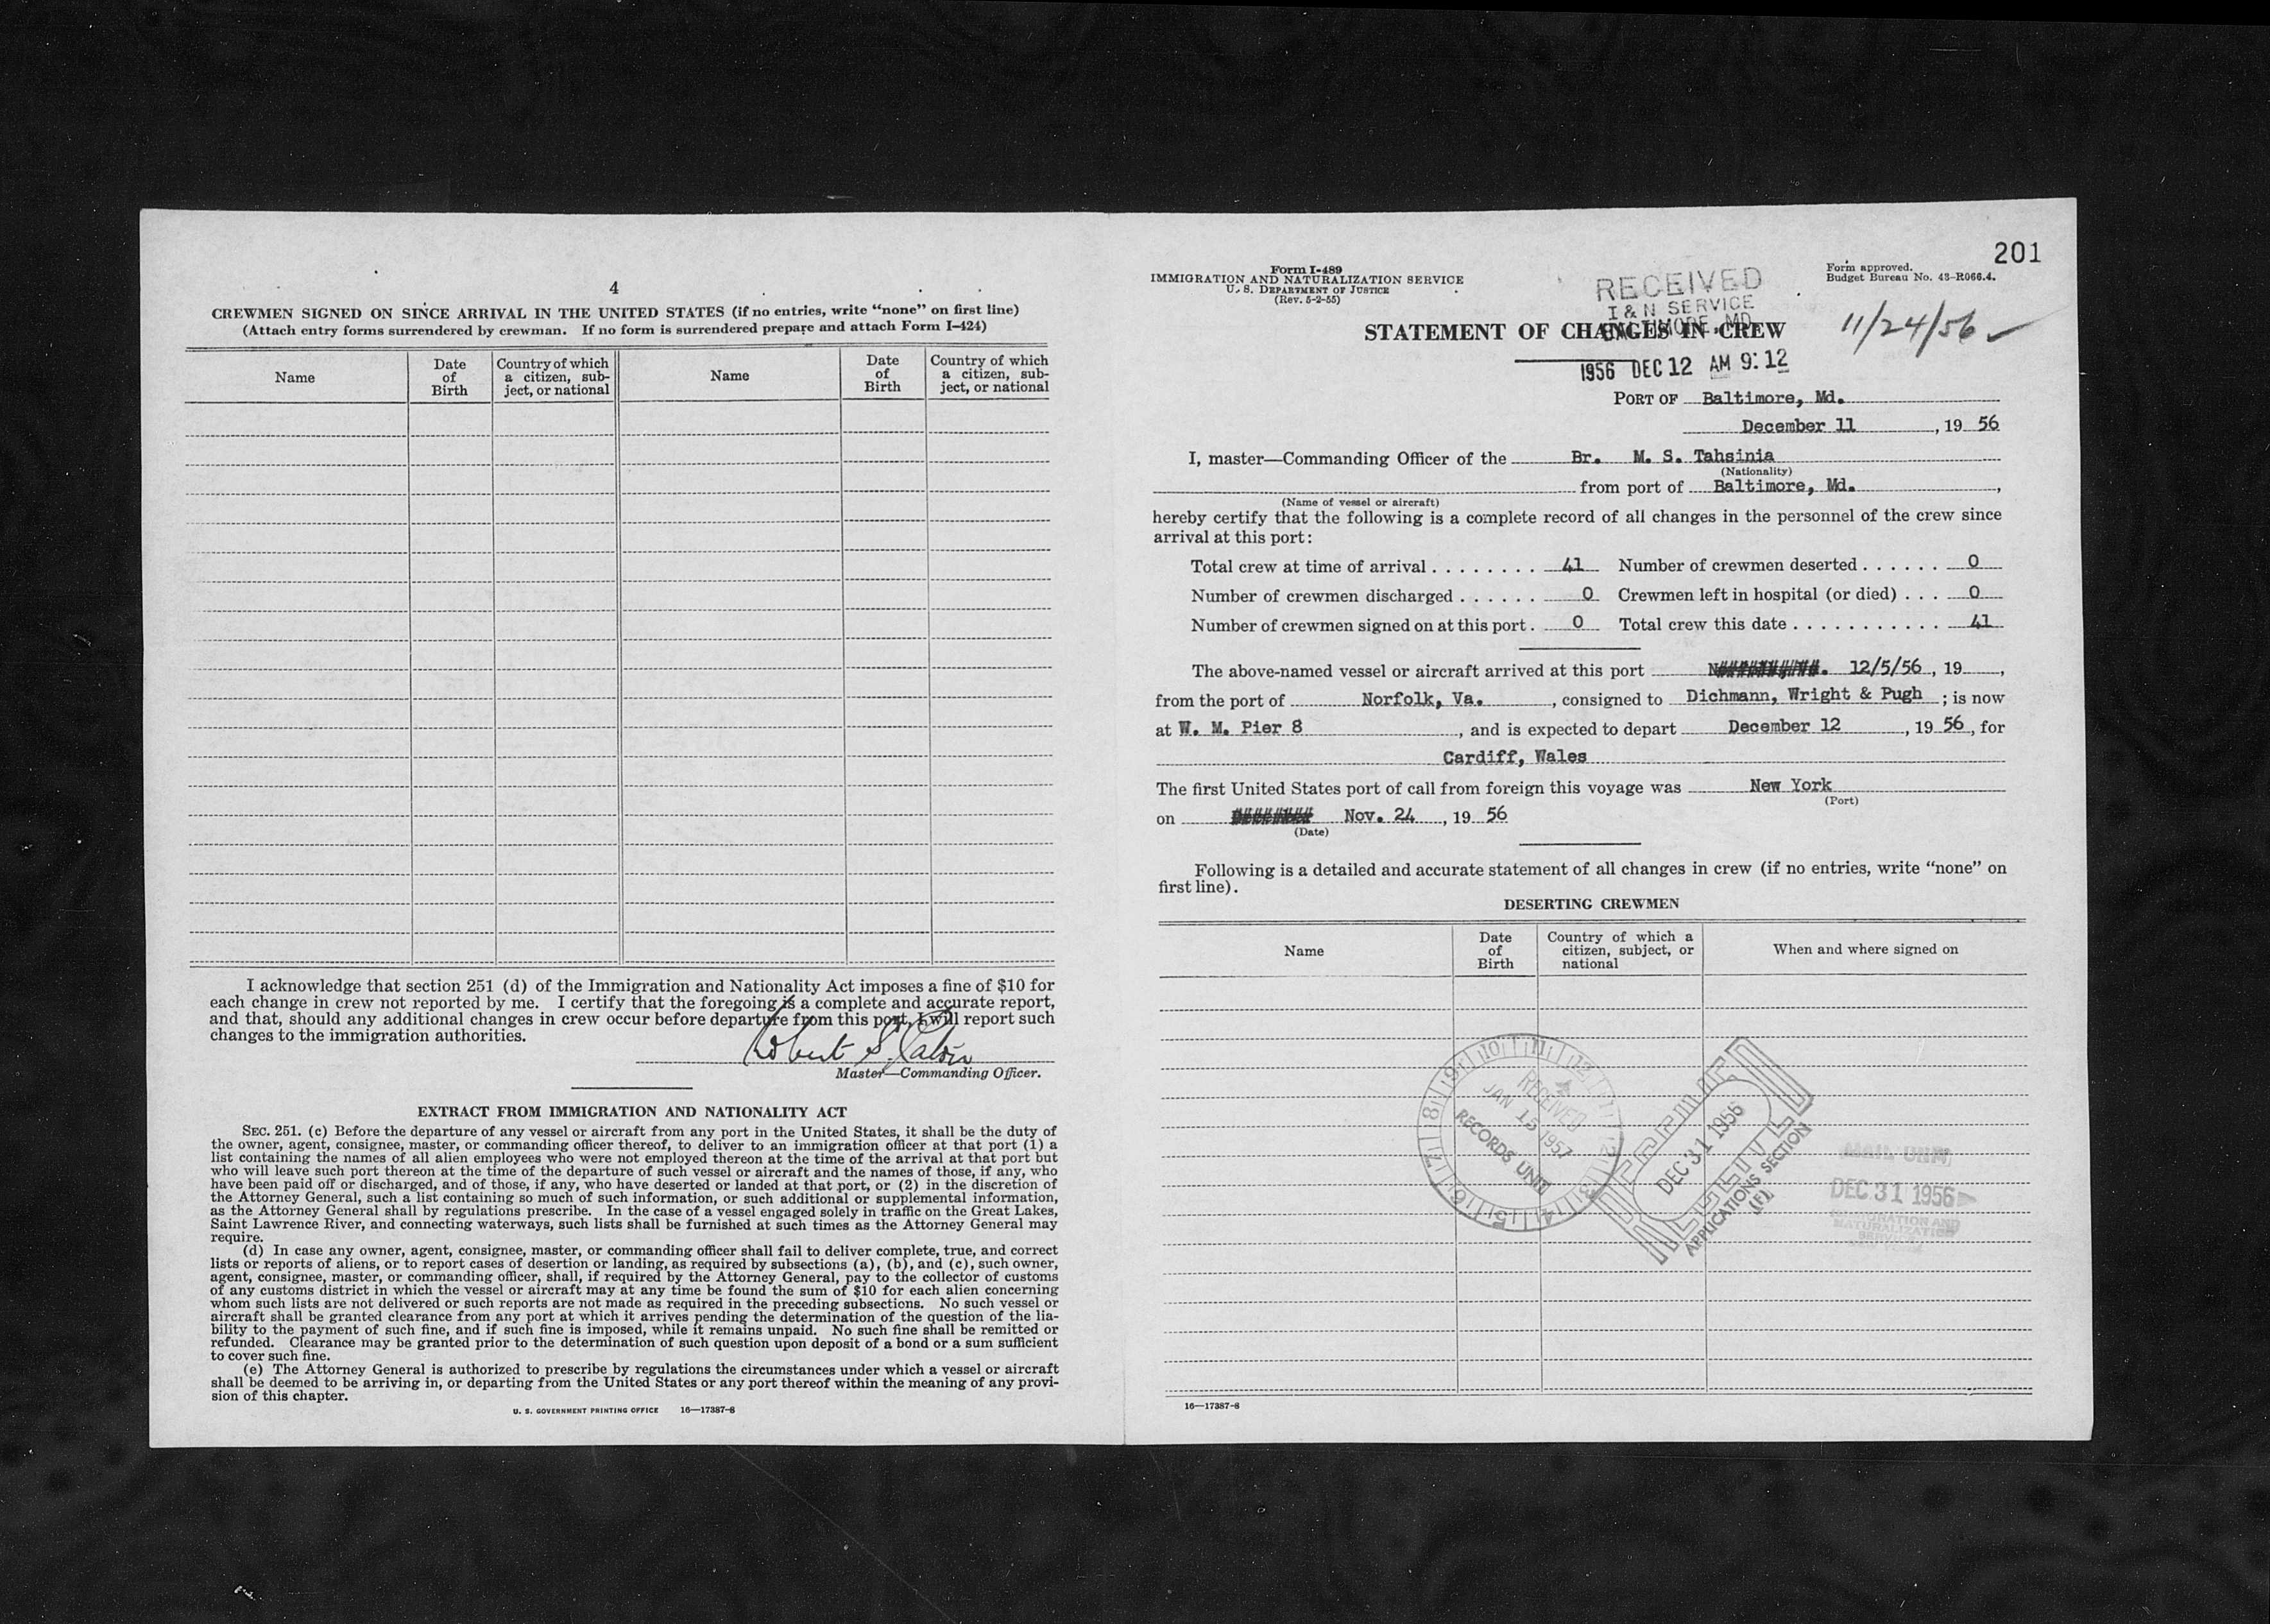 4
CREWMEN SIGNED ON SINCE ARRIVAL IN THE UNITED STATES (if no entries, write “none” on first line)
(Attach entry forms surrendered by crewman. If no form is surrendered prepare and attach Form I-424)
Name
Date of Birth
Country of which a citizen, subject, or national
Name
Date of Birth
Country of which a citizen, subject, or national
I acknowledge that section 251 (d) of the Immigration and Nationality Act imposes a fine of $10 for
each change in crew not reported by me. I certify that the foregoing is a complete and accurate report,
and that, should any additional changes in crew occur before departure from this port, I will report such
changes to the immigration authorities.
Robert S.
Master—Commanding Officer.
EXTRACT FROM IMMIGRATION AND NATIONALITY ACT
SEC. 251. (c) Before the departure of any vessel or aircraft from any port in the United States, it shall be the duty of
the owner, agent, consignee, master, or commanding officer thereof, to deliver to an immigration officer at that port (1) a
list containing the names of all alien employees who were not employed thereon at the time of the arrival at that port but
who will leave such port thereon at the time of the departure of such vessel or aircraft and the names of those, if any, who
have been paid off or discharged, and of those, if any, who have deserted or landed at that port, or (2) in the discretion of
the Attorney General, such a list containing so much of such information, or such additional or supplemental information,
as the Attorney General shall by regulations prescribe. In the case of a vessel engaged solely in traffic on the Great Lakes,
Saint Lawrence River, and connecting waterways, such lists shall be furnished at such times as the Attorney General may
require.
(d) In case any owner, agent, consignee, master, or commanding officer shall fail to deliver complete, true, and correct
lists or reports of aliens, or to report cases of desertion or landing, as required by subsections (a), (b), and (c), such owner,
agent, consignee, master, or commanding officer, shall, if required by the Attorney General, pay to the collector of customs
of any customs district in which the vessel or aircraft may at any time be found the sum of $10 for each alien concerning
whom such lists are not delivered or such reports are not made as required in the preceding subsections. No such vessel or
aircraft shall be granted clearance from any port at which it arrives pending the determination of the question of the lia-
bility to the payment of such fine, and if such fine is imposed, while it remains unpaid. No such fine shall be remitted or
refunded. Clearance may be granted prior to the determination of such question upon deposit of a bond or a sum sufficient
to cover such fine.
(e) The Attorney General is authorized to prescribe by regulations the circumstances under which a vessel or aircraft
shall be deemed to be arriving in, or departing from the United States or any port thereof within the meaning of any provi-
sion of this chapter.
U. S. GOVERNMENT PRINTING OFFICE 16—17387-8
201
Form I-489
IMMIGRATION AND NATURALIZATION SERVICE
U. S. DEPARTMENT OF JUSTICE
(Rev. 5-2-55)
Form approved.
Budget Bureau No. 43-R066.4.
RECEIVED
I & N SERVICE
BALTIMORE, MD.
11/24/56
STATEMENT OF CHANGES IN CREW
1956 DEC 12 AM 9:12
PORT OF Baltimore, Md.
December 11, 19 56
I, master—Commanding Officer of the Br. M. S. Tahsinia
(Nationality)
from port of Baltimore, Md.,
(Name of vessel or aircraft)
hereby certify that the following is a complete record of all changes in the personnel of the crew since
arrival at this port:
Total crew at time of arrival . . . . . . . . 41 Number of crewmen deserted . . . . . . 0
Number of crewmen discharged . . . . . . 0 Crewmen left in hospital (or died) . . . 0
Number of crewmen signed on at this port . 0 Total crew this date . . . . . . . . . . . 41
The above-named vessel or aircraft arrived at this port 12/5/56, 19 ,
from the port of Norfolk, Va., consigned to Dichmann, Wright & Pugh; is now
at W. M. Pier 8, and is expected to depart December 12, 19 56, for
Cardiff, Wales
The first United States port of call from foreign this voyage was New York
(Port)
on Nov. 24, 19 56
(Date)
Following is a detailed and accurate statement of all changes in crew (if no entries, write “none” on
first line).
DESERTING CREWMEN
Name
Date of Birth
Country of which a citizen, subject, or national
When and where signed on
RECEIVED
JAN 15 1957
RECORDS UNIT
RECEIVED
DEC 31 1956
APPLICATIONS SECTION
(F)
MAIL UNIT
DEC 31 1956
IMMIGRATION AND
NATURALIZATION
SERVICE
16—17387-8